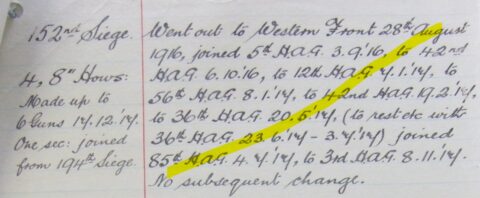 152nd Siege.
4, 8" Hows:
Made up to
6 Guns 14.12.17.
One sec: joined
from 194th Siege.
Went out to Western Front 28th August
1916, joined 5th H.A.G. 3.9.'16, to 42nd
H.A.G 6.10.'16, to 12th H.A.G. 7.1.'17, to
56th H.A.G. 8.1.'17, to 42nd H.A.G. 19.2.'17,
to 36th H.A.G. 20.5.'17, (to rest etc with
36th H.A.G. 23.6.'17 - 3.7.'17) joined
85th H.A.G. 4.7.'17, to 3rd H.A.G. 8.11.'17.
No subsequent change.